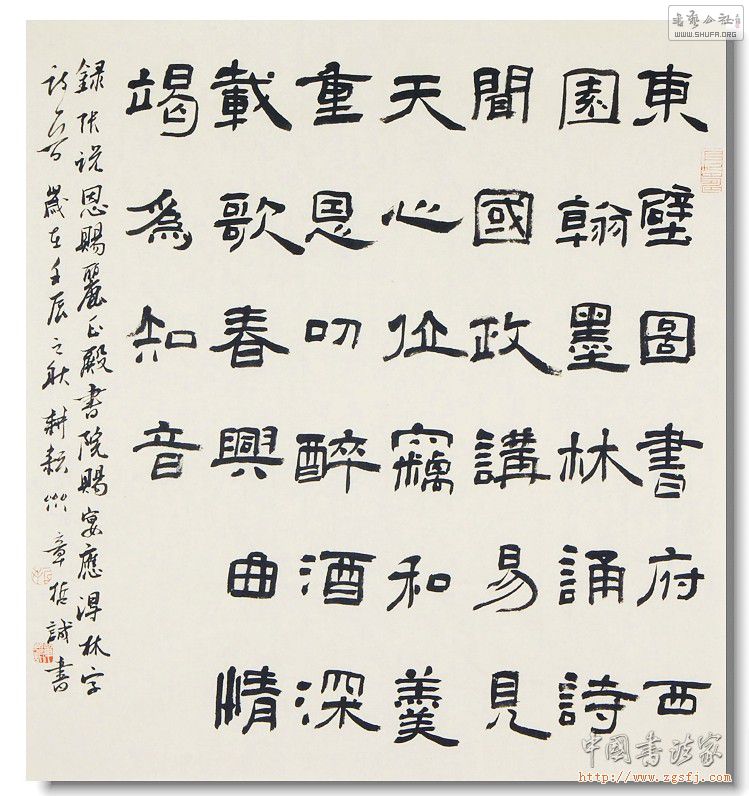 東壁圖書府西
園翰墨林誦詩
聞國政講易見
天心位竊和羹
重恩叨醉酒深
載歌春興曲情
竭為知音
錄張説恩賜麗正殿書院賜宴應得林字
詩一首 歲在壬辰之秋 耕耘 章哲誠書
书艺公社
WWW.SHUFA.ORG
中國書法家
http://www.zgsfj.com